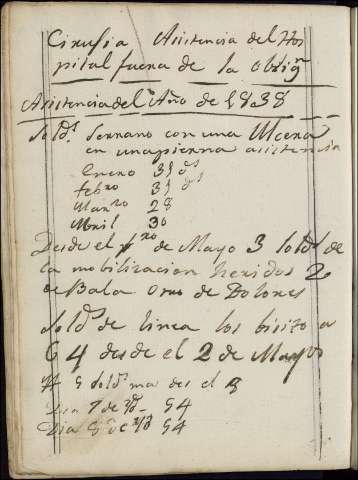 Cirusia Asistencia del Hos
pital fuera de la oblign
Asistencia del Año de 1838
Solds Serrano con una Ulcera
en una pierna asistencia
Enero 31 ds
febro 31 ds
Marzo 28
Abril 30
Desde el 1ro de Mayo 3 soldos de
la mobilizacion heridos 2
de Bala otro de Dolores
Soldos de linea los bisito a
6 4 desde el 2 de Mayo
5 soldos mas des el 3
Dia 7 de 54
Dia 54